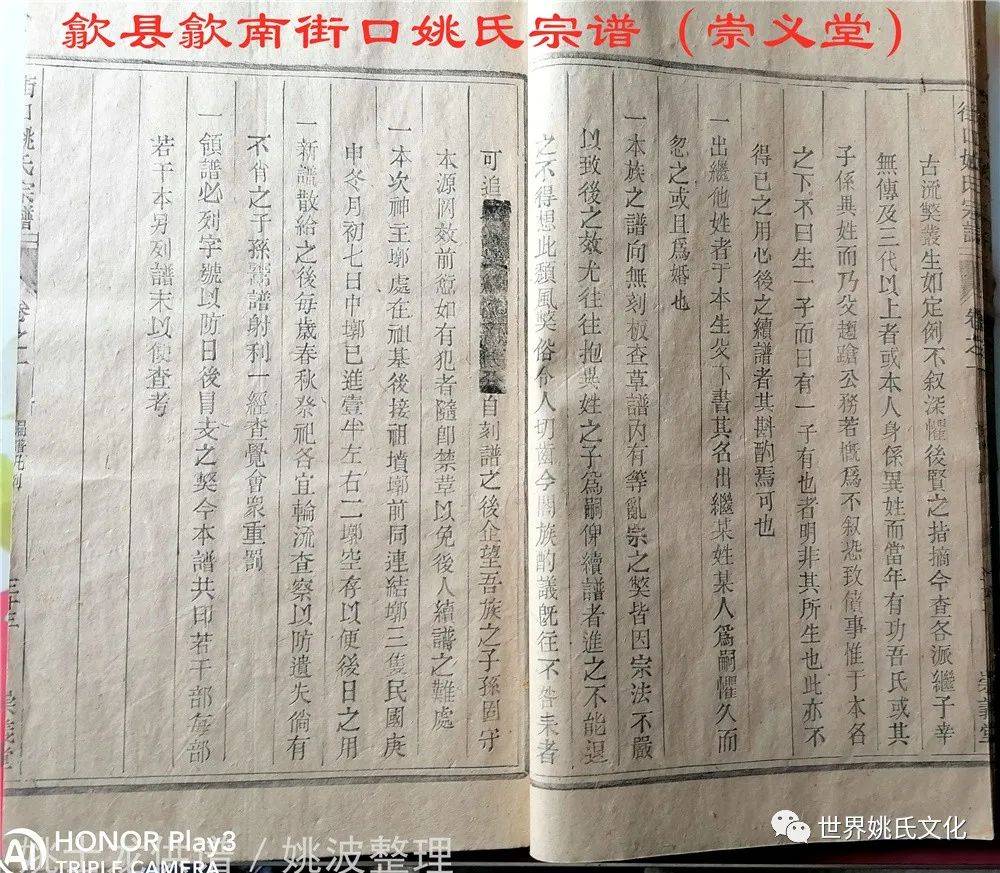 歙县歙南街口姚氏宗谱（崇义堂）
街口姚氏宗譜
卷之一
崇義堂
古流獘叢生如定例不叙深懼後賢之指摘今查各派繼子幸
無傳及三代以上者或本人身係異姓而當年有功吾氏或其
子係異姓而乃父趨蹌公務若慨爲不叙恐致僨事惟于本名
之下不曰生一子而曰有一子有也者明非其所生也此亦不
得已之用心後之續譜者其斟酌焉可也
一出繼他姓者于本生父下書其名出繼某姓某人爲嗣懼久而
忽之或且爲婚也
一本族之譜向無刻板查草譜內有等亂宗之獘皆因宗法不嚴
以致後之效尤往往抱異姓之子爲嗣俾續譜者進之不能退
之不得想此頹風獘俗令人切齒今闔族酌議旣往不咎未者
可追
自刻譜之後企望吾族之子孫固守
本源罔效前愆如有犯者隨卽禁革以免後人續譜之難處
一本次神主墎處在祖基後接祖墳墎前同連結墎三隻民國庚
申冬月初七日中墎已進壹坐左右二墎空存以便後日之用
一新譜散給之後每歲春秋祭祀各宜輪流查察以防遺失倘有
不肖之子孫鬻譜射利一經查覺會衆重罰
一領譜必列字號以防日後冒支之獘今本譜共印若干部每部
若干本另列譜末以便查考
街口姚氏宗譜
卷之一
三十三
崇義堂
HONOR Play3
TRIPLE CAMERA
姚波整理
世界姚氏文化